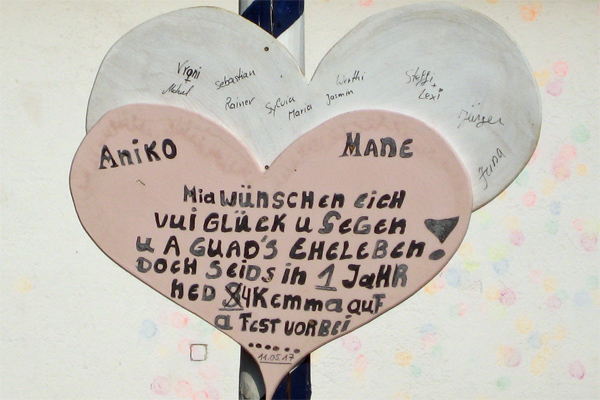 Vroni
+
Michael
Sebastian
Rainer
Sylvia
Maria
Werthi
Jasmin
Steffi
Lexi
Jürgen
Jana
Aniko
Mane
Mia wünschen eich
vui Glück u Segen
u a guad's Eheleben!
Doch seids in 1 Jahr
ned 84 kemma auf
a Fest vorbei
........
11.05.17